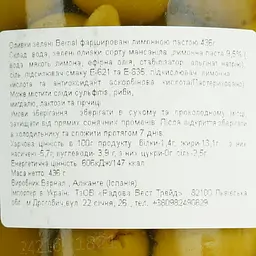 Оливки зелені Bernal фаршировані лимонною пастою 436г
Склад: вода, зелені оливки сорту манзаніла, лимонна паста 9,5%(
вода, м'якоть лимона, ефірна олія, стабілізатор альгінат натрію),
сіль, підсилювач смаку Е-621 та Е-635, підкислювач лимонна
кислота та антиоксидант аскорбінова кислота(Пастеризовано).
Може містити сліди сульфітів, риби,
мигдалю, лактози та гірчиці.
Умови зберігання: зберігати в сухому та прохолодному місці,
захищати від прямих сонячних променів. Після відкриття зберігати
в холодильнику та спожити протягом 7 днів.
Харчова цінність в 100г продукту: білки-1,4г, жири-13,1г, з них
насичені-5,7г, вуглеводи- 3,9 г, з них цукри-0г, сіль-2,5г.
Енергетична цінність 606кДж/147 ккал.
Маса нетто: 436 г
Виробник Бернал, Аліканте (Іспанія).
Імпортер в Україні: ТзОВ «Радова Вест Трейд», 82100 Львівська
обл, м.Дрогобич, вул. 22 січня, тел.